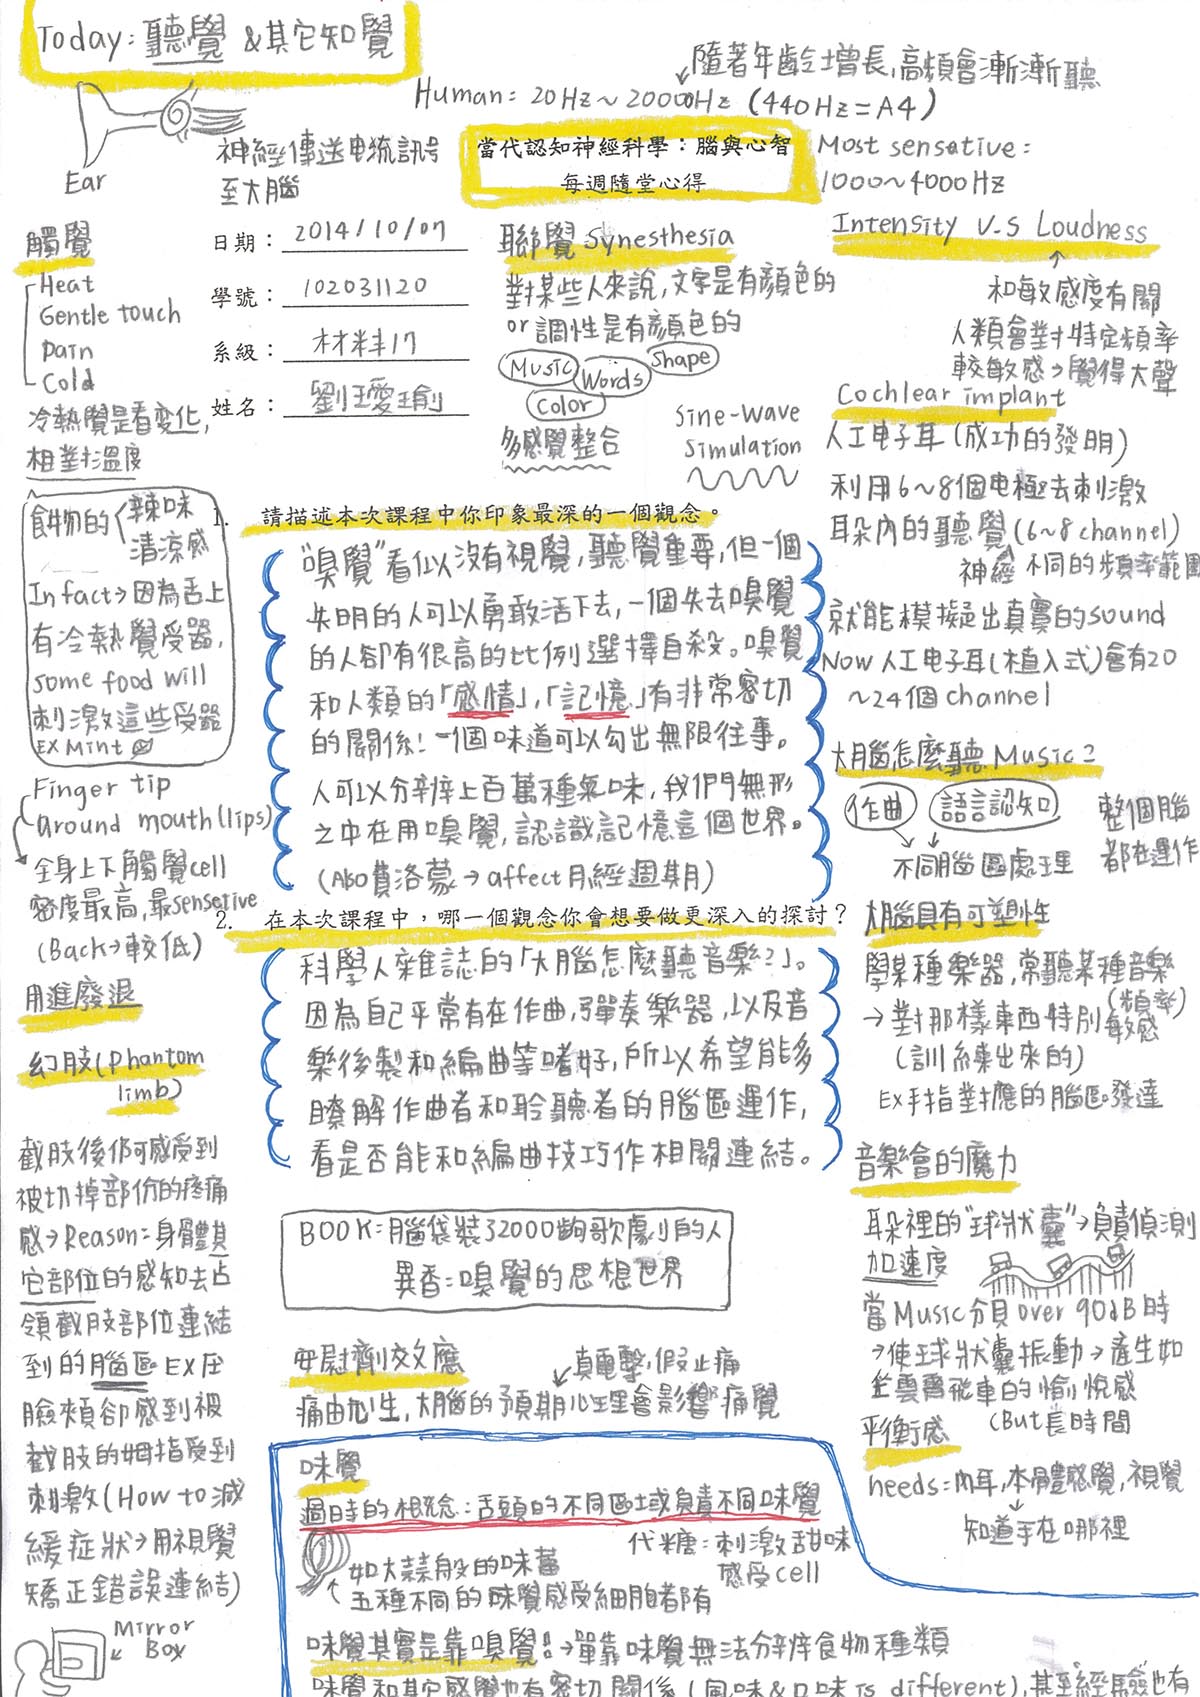 Today: 聽覺 &其它知覺
隨著年齡增長,高頻會漸漸聽
Human: 20Hz~20000Hz (440Hz=A4)
Ear
神經傳送电流訊号
至大腦
當代認知神經科學：腦與心智
每週隨堂心得
Most sensative:
1000~4000Hz
日期：2014/10/07
學號：102031120
系級：材料17
姓名：劉璦瑜
觸覺
Heat
Gentle touch
Pain
Cold
冷熱覺是看变化,
相對溫度
食物的
辣味
清涼感
In fact→因為舌上
有冷熱覺受器,
some food will
刺激這些受器
EX Mint
Finger tip
around mouth(lips)
全身上下觸覺cell
密度最高,最sensetive
(Back→較低)
用進廢退
幻肢(Phantom
limb)
截肢後仍可感受到
被切掉部份的疼痛
感→Reason:身體其
它部位的感知去占
領截肢部位連結
到的腦區 EX压
臉頰卻感到被
截肢的姆指受到
刺激(How to減
緩症狀→用視覺
矯正錯誤連結)
Mirror
Box
聯覺 Synesthesia
對某些人來說,文字是有顏色的
or 調性是有顏色的
Music
Words
Shape
Color
多感覺整合
Sine-Wave
Simulation
1. 請描述本次課程中你印象最深的一個觀念。
"嗅覺"看似沒有視覺,聽覺重要,但一個
失明的人可以勇敢活下去,一個失去嗅覺
的人卻有很高的比例選擇自殺。嗅覺
和人類的「感情」,「記憶」有非常密切
的關係!一個味道可以勾出無限往事。
人可以分辨上百萬種氣味,我們無形
之中在用嗅覺,認識記憶這個世界。
(ABO費洛蒙→affect月經週期)
2. 在本次課程中，哪一個觀念你會想要做更深入的探討？
科學人雜誌的「大腦怎麼聽音樂?」。
因為自己平常有在作曲,彈奏樂器,以及音
樂後製和編曲等嗜好,所以希望能多
瞭解作曲者和聆聽者的腦區運作,
看是否能和編曲技巧作相關連結。
BOOK:腦袋裝了2000齣歌劇的人
異香:嗅覺的思想世界
安慰劑效應
真電擊,假止痛
痛由心生,大腦的預期心理會影響痛覺
味覺
過時的概念:舌頭的不同區域負責不同味覺
如大蒜般的味蕾
五種不同的味覺感受細胞都有
代糖:刺激甜味
感受cell
味覺其實是靠嗅覺!→單靠味覺無法分辨食物種類
味覺和其它感覺也有密切關係(風味&口味is different),甚至經驗也有
Intensity V.S Loudness
和敏感度有關
人類會對特定頻率
較敏感→覺得大聲
Cochlear implant
人工电子耳(成功的發明)
利用6~8個电極去刺激
耳朵內的聽覺(6~8 channel)
神經 不同的頻率範圍
就能模擬出真實的sound
Now人工电子耳(植入式)會有20
~24個channel
大腦怎麼聽Music?
作曲
語言認知
不同腦區處理
整個腦
都在運作
大腦具有可塑性
學某種樂器,常聽某種音樂
→對那樣東西特別(頻率)敏感
(訓練出來的)
EX手指對應的腦區發達
音樂會的魔力
耳朵裡的"球狀囊"→負責偵測
加速度
當Music分貝over 90dB時
→使球狀囊振動→產生如
坐雲霄飛車的愉悅感
(But長時間
平衡感
needs:內耳,本體感覺,視覺
知道手在哪裡